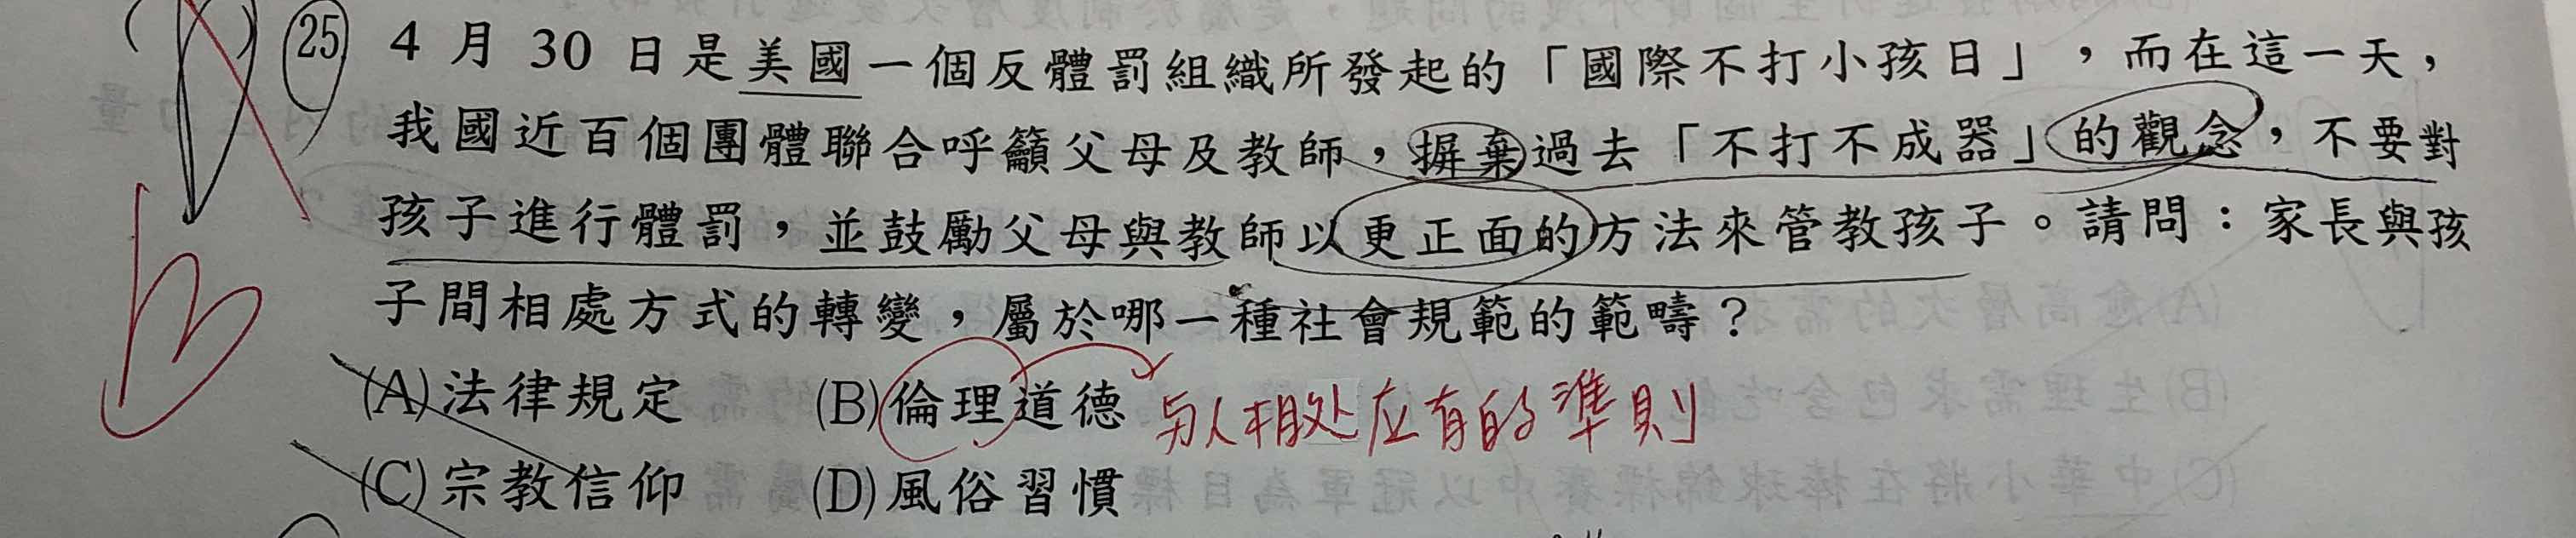 (D) ㉕ 4 月 30 日是美國一個反體罰組織所發起的「國際不打小孩日」，而在這一天，
我國近百個團體聯合呼籲父母及教師，摒棄過去「不打不成器」的觀念，不要對
孩子進行體罰，並鼓勵父母與教師以更正面的方法來管教孩子。請問：家長與孩
子間相處方式的轉變，屬於哪一種社會規範的範疇？
B
(A)法律規定 (B)倫理道德 与人相处应有的準則
(C)宗教信仰 (D)風俗習慣